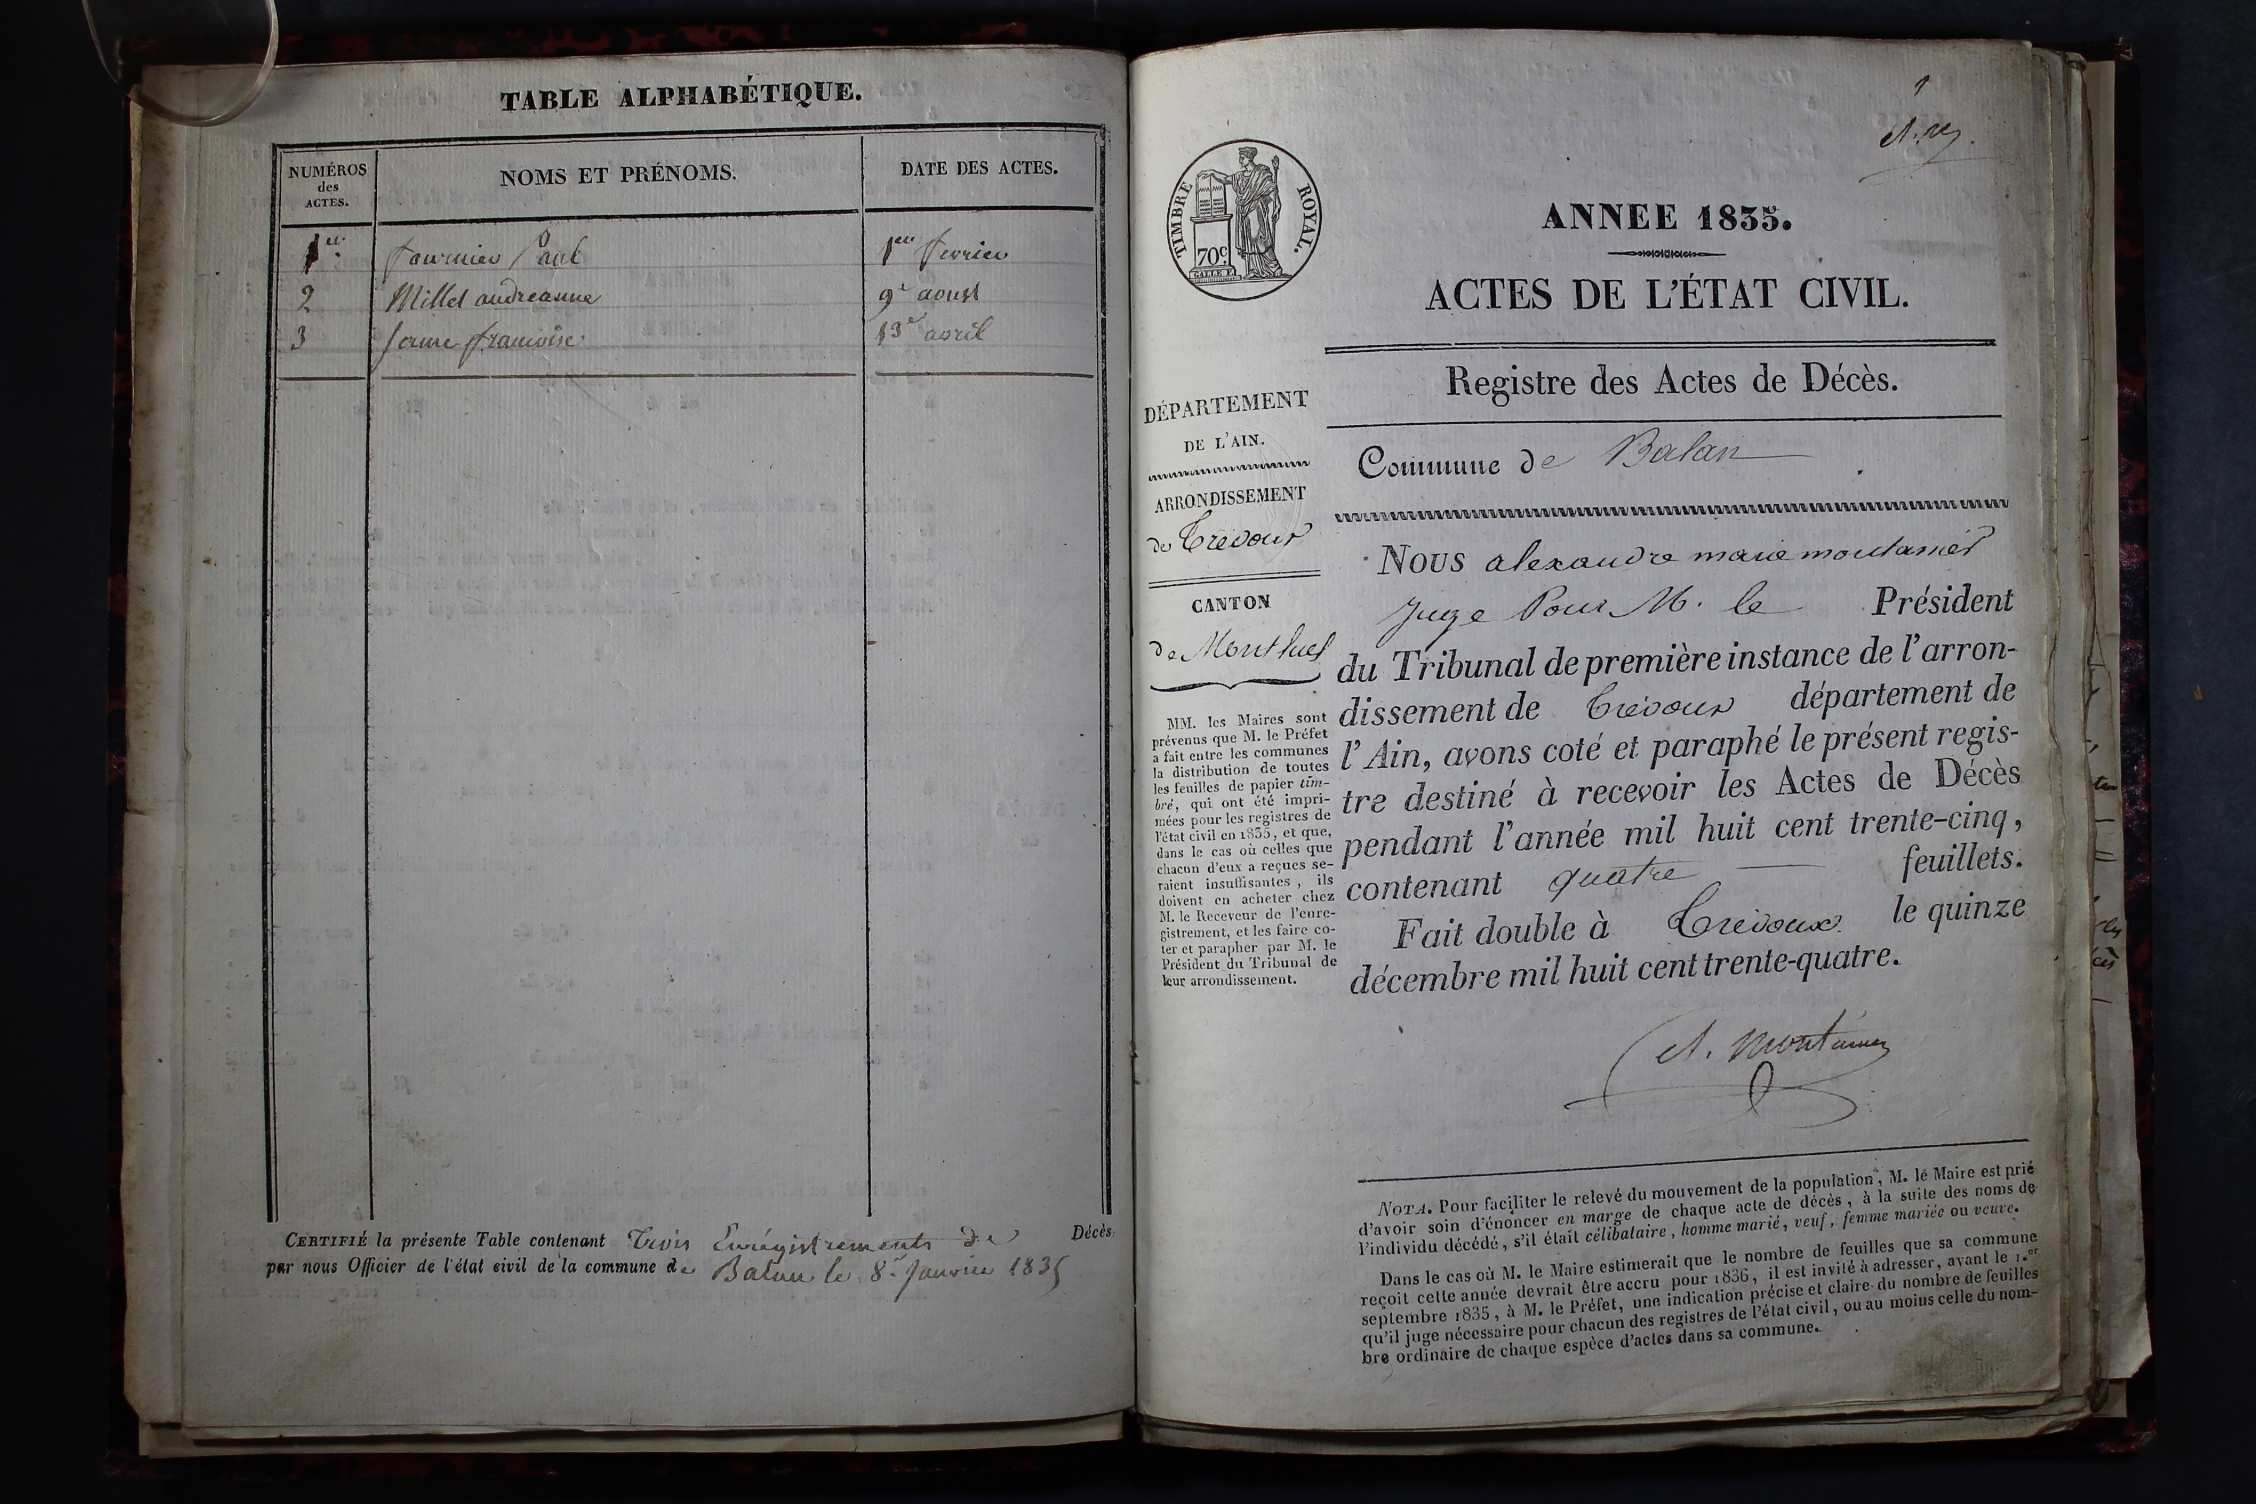 TABLE ALPHABÉTIQUE.
NUMÉROS des ACTES.
NOMS ET PRÉNOMS.
DATE DES ACTES.
1er fournier Paul 1er fevrier
2 Millet andreanne 9e aoust
3 13e avril
CERTIFIÉ la présente Table contenant Trois Enrégistrements de Décès
par nous Officier de l'état civil de la commune de Balan le 8e Janvier 1835
1
TIMBRE ROYAL.
70c
ANNEE 1835.
ACTES DE L'ÉTAT CIVIL.
Registre des Actes de Décès.
Commune de Balan
DÉPARTEMENT
DE L'AIN.
ARRONDISSEMENT
de Trévoux
CANTON
de Montluel
MM. les Maires sont
prévenus que M. le Préfet
a fait entre les communes
la distribution de toutes
les feuilles de papier tim-
bré, qui ont été impri-
mées pour les registres de
l'état civil en 1835, et que,
dans le cas où celles que
chacun d'eux a reçues se-
raient insuffisantes, ils
doivent en acheter chez
M. le Receveur de l'enre-
gistrement, et les faire co-
ter et parapher par M. le
Président du Tribunal de
leur arrondissement.
Nous alexandre marie montanier
Juge Pour M. le Président
du Tribunal de première instance de l'arron-
dissement de Trévoux département de
l'Ain, avons coté et paraphé le présent regis-
tre destiné à recevoir les Actes de Décès
pendant l'année mil huit cent trente-cinq,
contenant quatre feuillets.
Fait double à Trévoux le quinze
décembre mil huit cent trente-quatre.
A. Montanier
NOTA. Pour faciliter le relevé du mouvement de la population, M. le Maire est prié
d'avoir soin d'énoncer en marge de chaque acte de décès, à la suite des noms de
l'individu décédé, s'il était célibataire, homme marié, veuf, femme mariée ou veuve.
Dans le cas où M. le Maire estimerait que le nombre de feuilles que sa commune
reçoit cette année devrait être accru pour 1836, il est invité à adresser, avant le 1.er
septembre 1835, à M. le Préfet, une indication précise et claire du nombre de feuilles
qu'il juge nécessaire pour chacun des registres de l'état civil, ou au moins celle du nom-
bre ordinaire de chaque espèce d'actes dans sa commune.